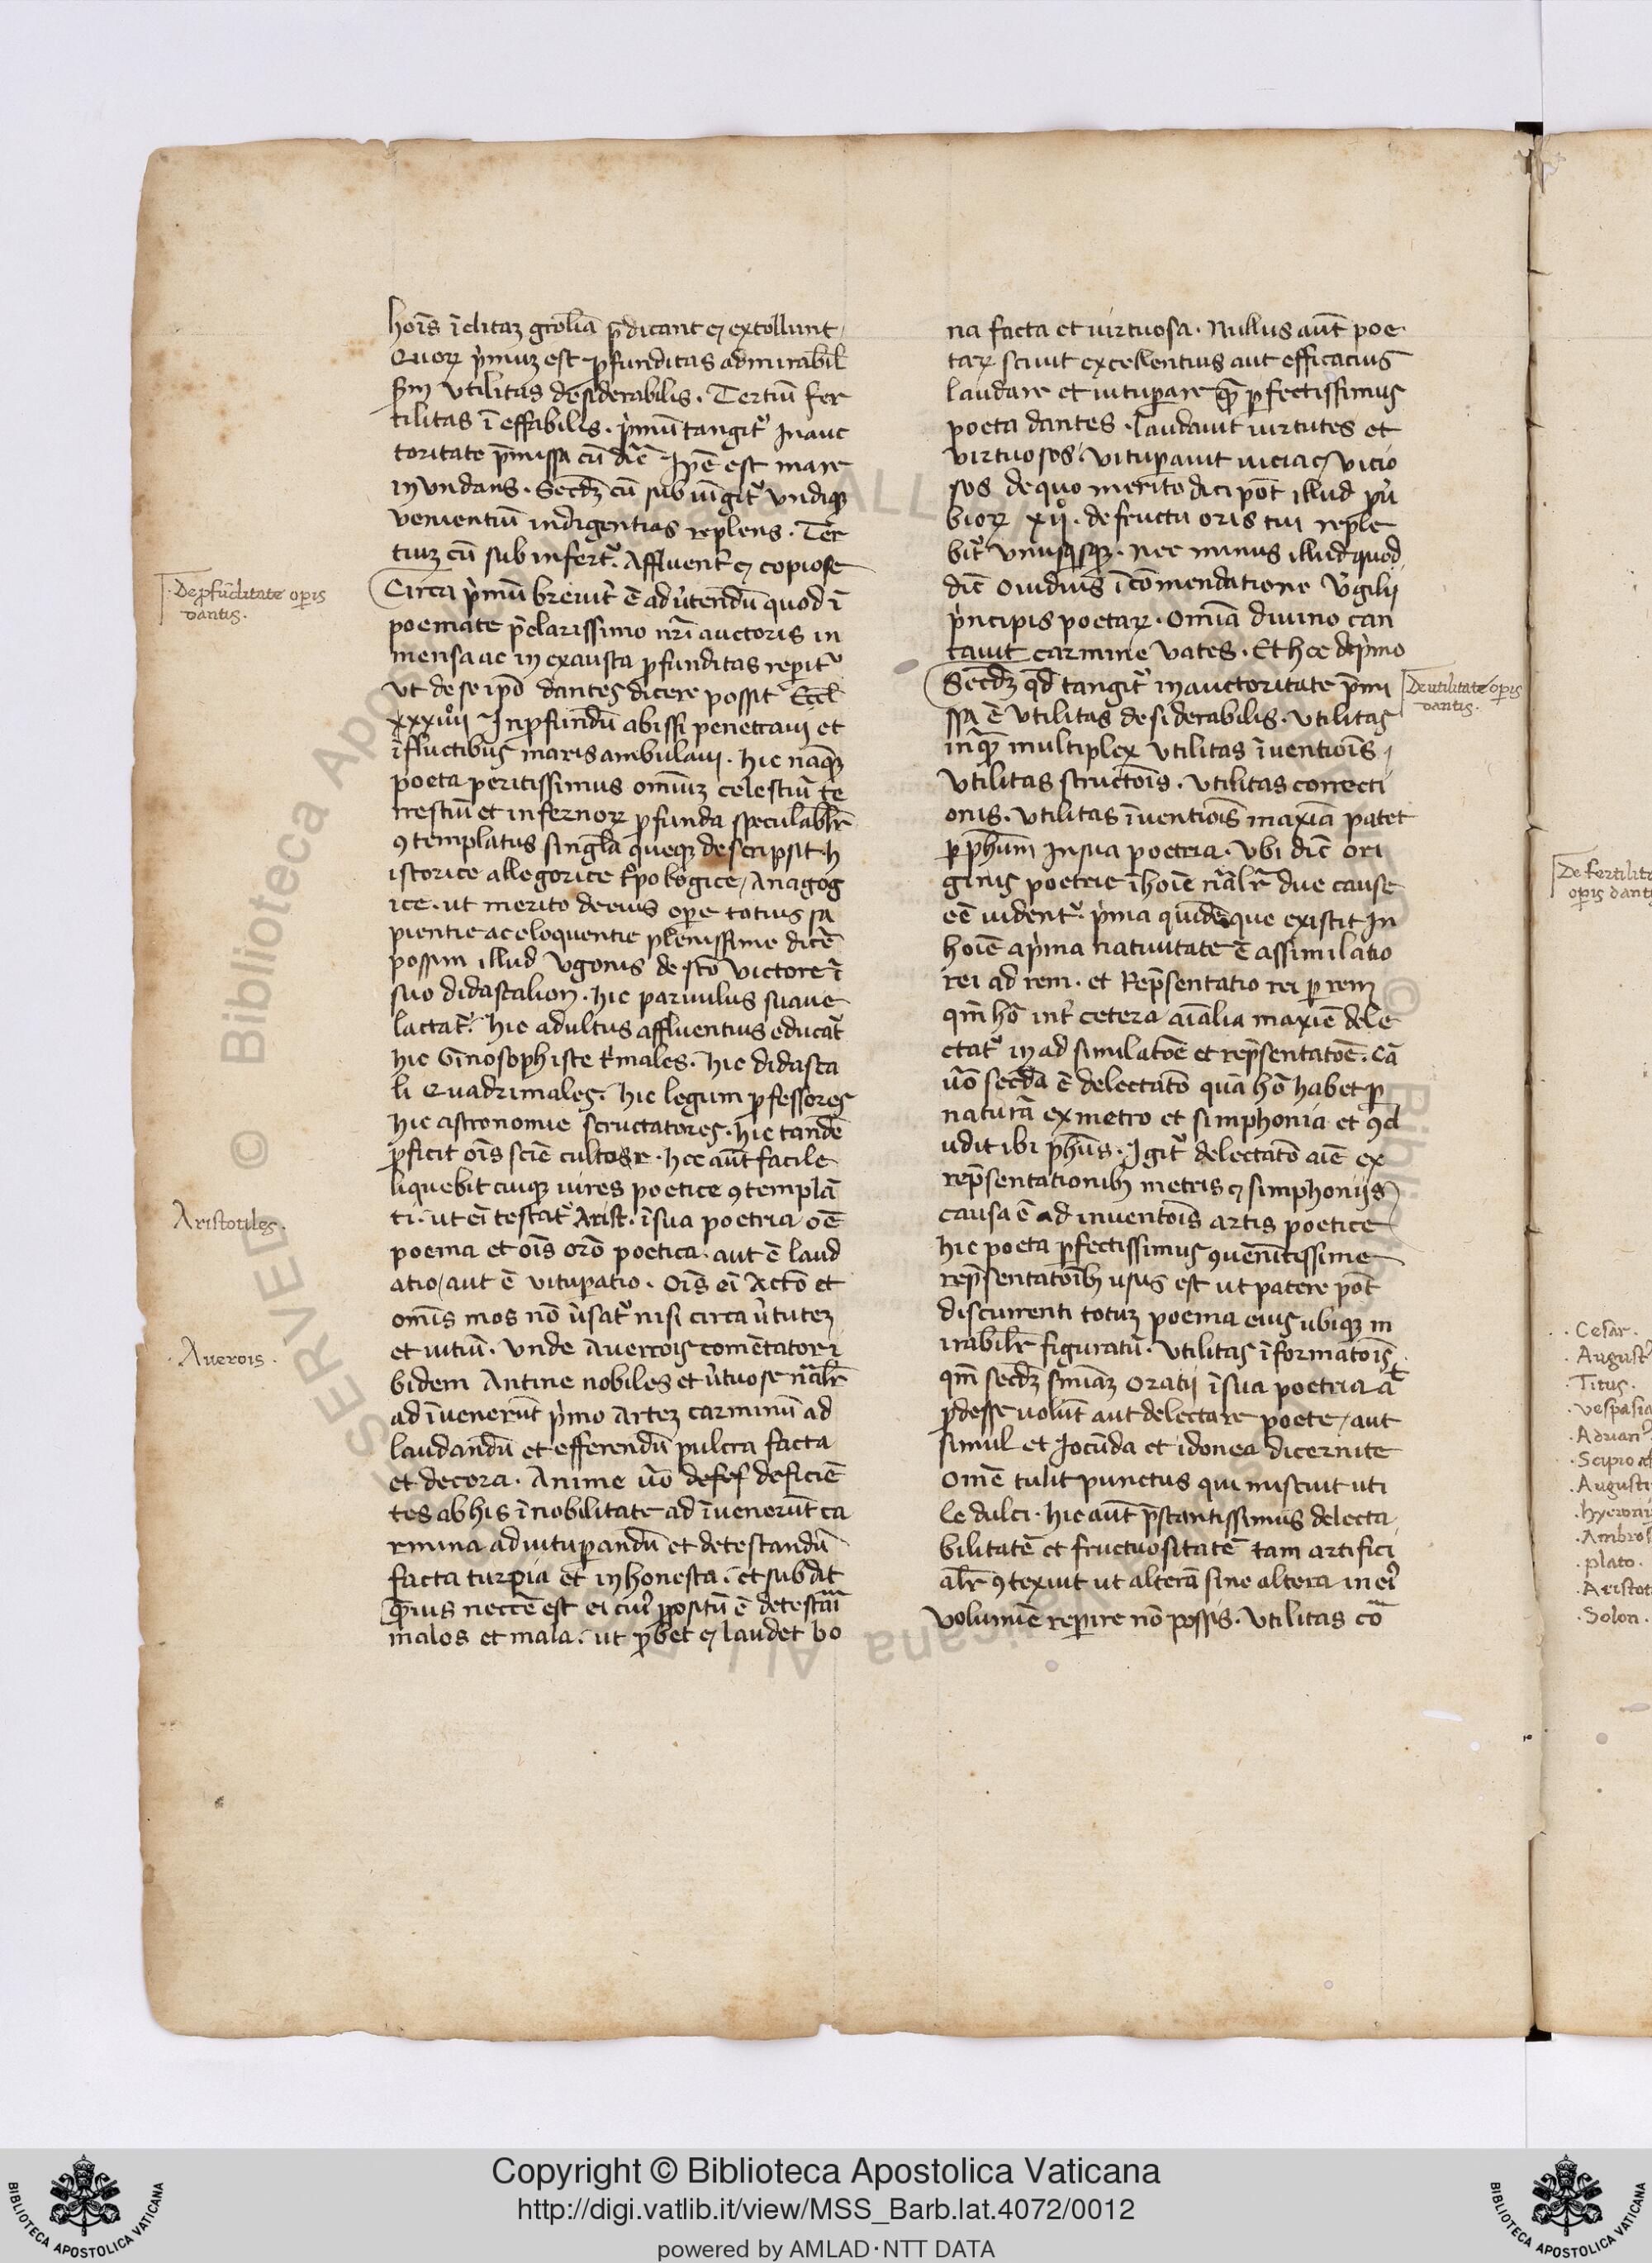 hoĩs ĩclitaz grolĩa p̄dicant ⁊ extollunt,
Quoꝝ p̍muz est ꝓfunditas admirabil̃
s̃m vtilitas desiderabilis. Tertiũ fer
tilitas ĩeffabilis. p̍mũ tangit᷑ in auc
toritate p̄missa cũ dic̃ Ip̃e est mare
inundans. Secd̃z cũ subiũgit᷑ vndiqꝫ
venientiũ indigentias replens. Ter
tiuz cũ sub infert᷑. Affluent᷑ ⁊ copiose
Circa p̍mũ breuit᷑ ẽ aduertendũ quod ĩ
poemate p̄clarissimo nr̃i auctoris in
mensa ac inexausta ꝓfunditas reperit᷑
vt de se ip̃o dantes dicere possit Eccl̃
xxxiiii In ꝓfundũ abissi penetraui et
ĩ fluctibus maris ambulaui. hic nãqꝫ
poeta peritissimus omniuz celestiũ te
rrestiũ et infernoꝝ ꝓfunda speculabl̃r
ꝯtemplatus singl̃a queqꝫ descripsit. h
istorice allegorice tropologice / Anagog
ice. ut merito de eius ope totius sa
pientie ac eloquentie plenissime dic̃e
possim illud vgonis de sc̃o victore ĩ
suo didascalion. hic paruulus suaue
lactat᷑. hic adultus affluentius educat᷑
hic Gĩnosophiste t̍males. hic didasca
li Quadrimales. hic legum ꝓfessores
hic astronomie scructatores. hic tandẽ
ꝓficit oĩs scĩe cultor. hec aũt facile
liquebit cuiqꝫ uires poetice ꝯtemplã
ti. ut eĩ testat᷑ Arist. ĩ sua poetria oẽ
poema et oĩs orõ poetica. aut ẽ laud
atio / aut ẽ vitupatio. Oĩs eĩ Actõ et
omĩs mos nõ ũsat᷑ nisi circa ũtutez
et uitiũ. Vnde Auerrois comẽtator i
bidem Antine nobiles et ũtuose nãlr̃
ad ĩuenerũt p̍mo Artez carminũ ad
laudandũ et efferendũ pulcra facta
et decora. Anime ũo defef deficiẽ
tes ab his ĩ nobilitate ad ĩuenerũt ca
rmina ad uituꝑandũ et detestandũ
facta turpia et inhonesta. et subdit
q̃uius neccẽ est ei cui᷒ ꝓpositũ ẽ detestãi
malos et mala. ut ꝓbet ⁊ laudet bo
na facta et uirtuosa. Nullus aũt poe
taꝝ sciuit excellentius aut efficacius
laudare et uituꝑare q̃ꝫ ꝑfectissimus
poeta dantes. laudauit uirtutes et
virtuosos. vituꝑauit uicia ⁊ vicio
sos de quo merito dici põt illud ꝓu̍
bioꝝ xij°. de fructu oris tui reple
bit᷑ vnusqꝫsqꝫ. nec minus illud quod
dic̃ ouidius ĩ cõmendatione v̍gilij
p̍ncipis poetaꝝ. Omĩa diuino can
tauit carmine vates. Et hec de p̍mo
Secd̃z qd̃ tangit᷑ in auctoritate p̄mi
ssa ẽ vtilitas desiderabilis. vtilitas
inq̃ꝫ multiplex vtilitas ĩuentioĩs,
vtilitas structoĩs. vtilitas correcti
onis. vtilitas ĩuentioĩs maxĩa patet
ꝑ ph̃um in sua poetria. vbi dic̃ ori
ginis poetrie ĩ hoĩe nãlr̃ due cause
eẽ uident᷑. p̍ma quidẽ que existit in
hoĩe a p̍ma natiuitate ẽ assimilatio
rei ad rem. et rep̄sentatio rei ꝑ rem
qm̃ hõ int᷑ cetera aĩalia maxiẽ dele
ctat᷑ in ad similatõe et rep̄sentatõe. Cã
ũo secd̃a ẽ delectatõ quã hõ habet ꝑ
naturã ex metro et simphonia et ꝯcl
udit ibi ph̃us. Igit᷑ delectatõ aĩe ex
rep̄sentationibꝫ metris ⁊ simphonijs
causa ẽ ad inuentoĩs artis poetice
hic poeta ꝑfectissimus ꝯuenĩtissime
rep̄sentatoĩbꝫ usus est ut patere põt
discurrenti totuz poema eius ubiqꝫ m
irabilr̃ figuratũ. vtilitas ĩformatoĩs
qm̃ secd̃z sniãz oratij ĩ sua poetria aᵗ
ꝓdesse uolũt aut delectare poete / aut
simul et iocũda et idonea dicer uite
omẽ tulit punctus qui miscuit uti
le dulci. hic aũt p̄stantissimus delecta
bilitatẽ et fructuositatẽ tam artifici
alr̃ ꝯtexuit ut alterã sine altera in ei᷒
volumĩe reperire nõ possis. vtilitas cõ
De ꝓfũditate opis
dantis.
Aristotiles.
. Auerois .
De utilitate opis
dantis.
De fertilita
opis dant
. Cesar .
. August᷒
. Titus .
. vespasia
. Adrian᷒
. Scipio
. Augusti
. hyeroni
. Ambros
. plato .
. Aristot
. Solon .
© Biblioteca Apostolica Vaticana ALL RIGHTS RESERVED
Copyright © Biblioteca Apostolica Vaticana
http://digi.vatlib.it/view/MSS_Barb.lat.4072/0012
powered by AMLAD·NTT DATA
BIBLIOTECA APOSTOLICA VATICANA
BIBLIOTECA APOSTOLICA VATICANA